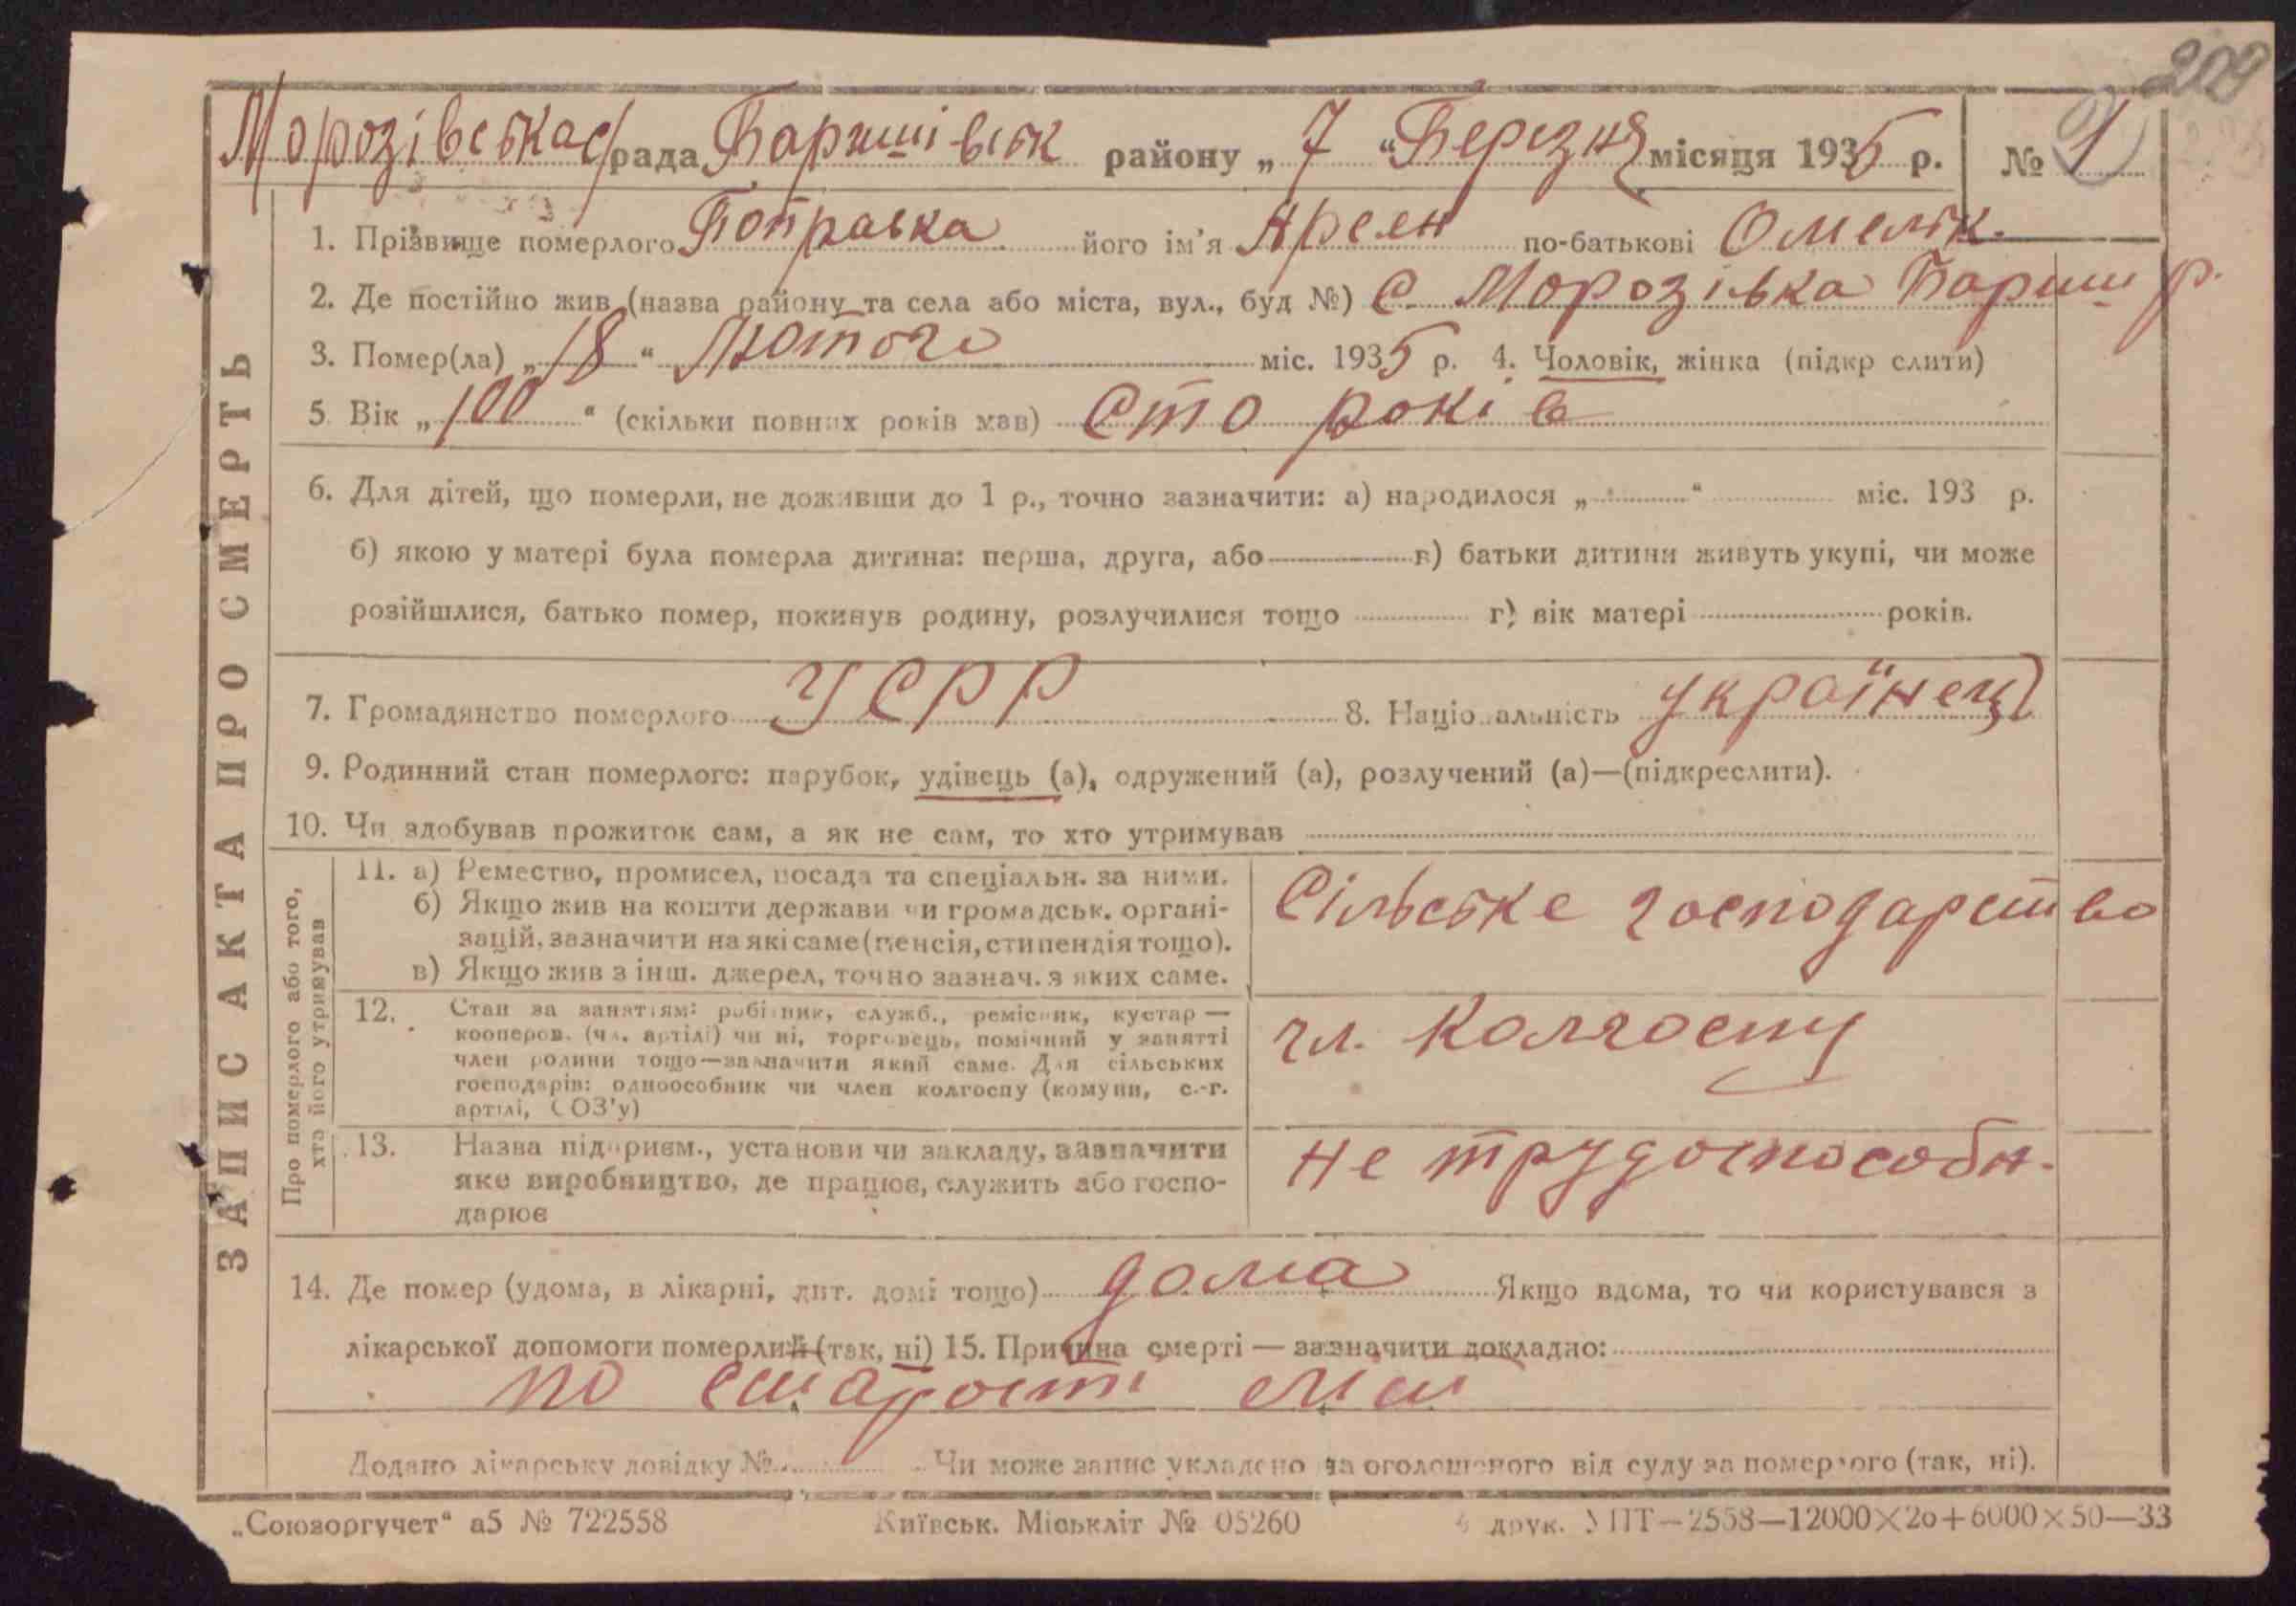 209
Морозівська с/рада Баришівськ району „ 7 “ Березня місяця 1935 р. № 1
1. Прізвище померлого Поправка його ім’я Арсен по-батькові Омельк.
2. Де постійно жив (назва району та села або міста, вул., буд №) с. Морозівка Бариш р.
3. Помер(ла) „ 18 “ Лютого міс. 1935 р. 4. Чоловік, жінка (підкр слити)
5. Вік „ 100 “ (скільки повних років мав) Сто років
6. Для дітей, що померли, не доживши до 1 р., точно зазначити: а) народилося „ “ міс. 193 р.
б) якою у матері була померла дитина: перша, друга, або в) батьки дитини живуть укупі, чи може
розійшлися, батько помер, покинув родину, розлучилися тощо г) вік матері років.
7. Громадянство померлого УСРР 8. Націо альність українець
9. Родинний стан померлого: парубок, удівець (а), одружений (а), розлучений (а)—(підкреслити).
10. Чи здобував прожиток сам, а як не сам, то хто утримував
ЗАПИС АКТА ПРО СМЕРТЬ
Про померлого або того,
хто його утримував
11. а) Ремество, промисел, посада та спеціальн. за ними.
б) Якщо жив на кошти держави чи громадськ. органі-
зацій, зазначити на які саме (пенсія, стипендія тощо).
в) Якщо жив з інш. джерел, точно зазнач. з яких саме.
Сільське господарство
12. Стан за заняттям: робітник, служб., ремісник, кустар —
кооперов. (чл. артілі) чи ні, торговець, помічний у занятті
член родини тощо—зазначити який саме. Для сільських
господарів: одноособник чи член колгоспу (комуни, с.-г.
артілі, СОЗ'у)
чл. колгоспу
13. Назва підприєм., установи чи закладу, зазначити
яке виробництво, де працює, служить або госпо-
дарює
не трудоспособн.
14. Де помер (удома, в лікарні, дит. домі тощо) дома Якщо вдома, то чи користувався з
лікарської допомоги померлий (так, ні) 15. Причина смерті — зазначити докладно:
по старості літ
Додано лікарську довідку № Чи може запис укладено на оголошеного від суду за померлого (так, ні).
„Союзоргучет“ а5 № 722558 Київськ. Міськліт № 05260 друк. УПТ—2558—12000×20+6000×50—33